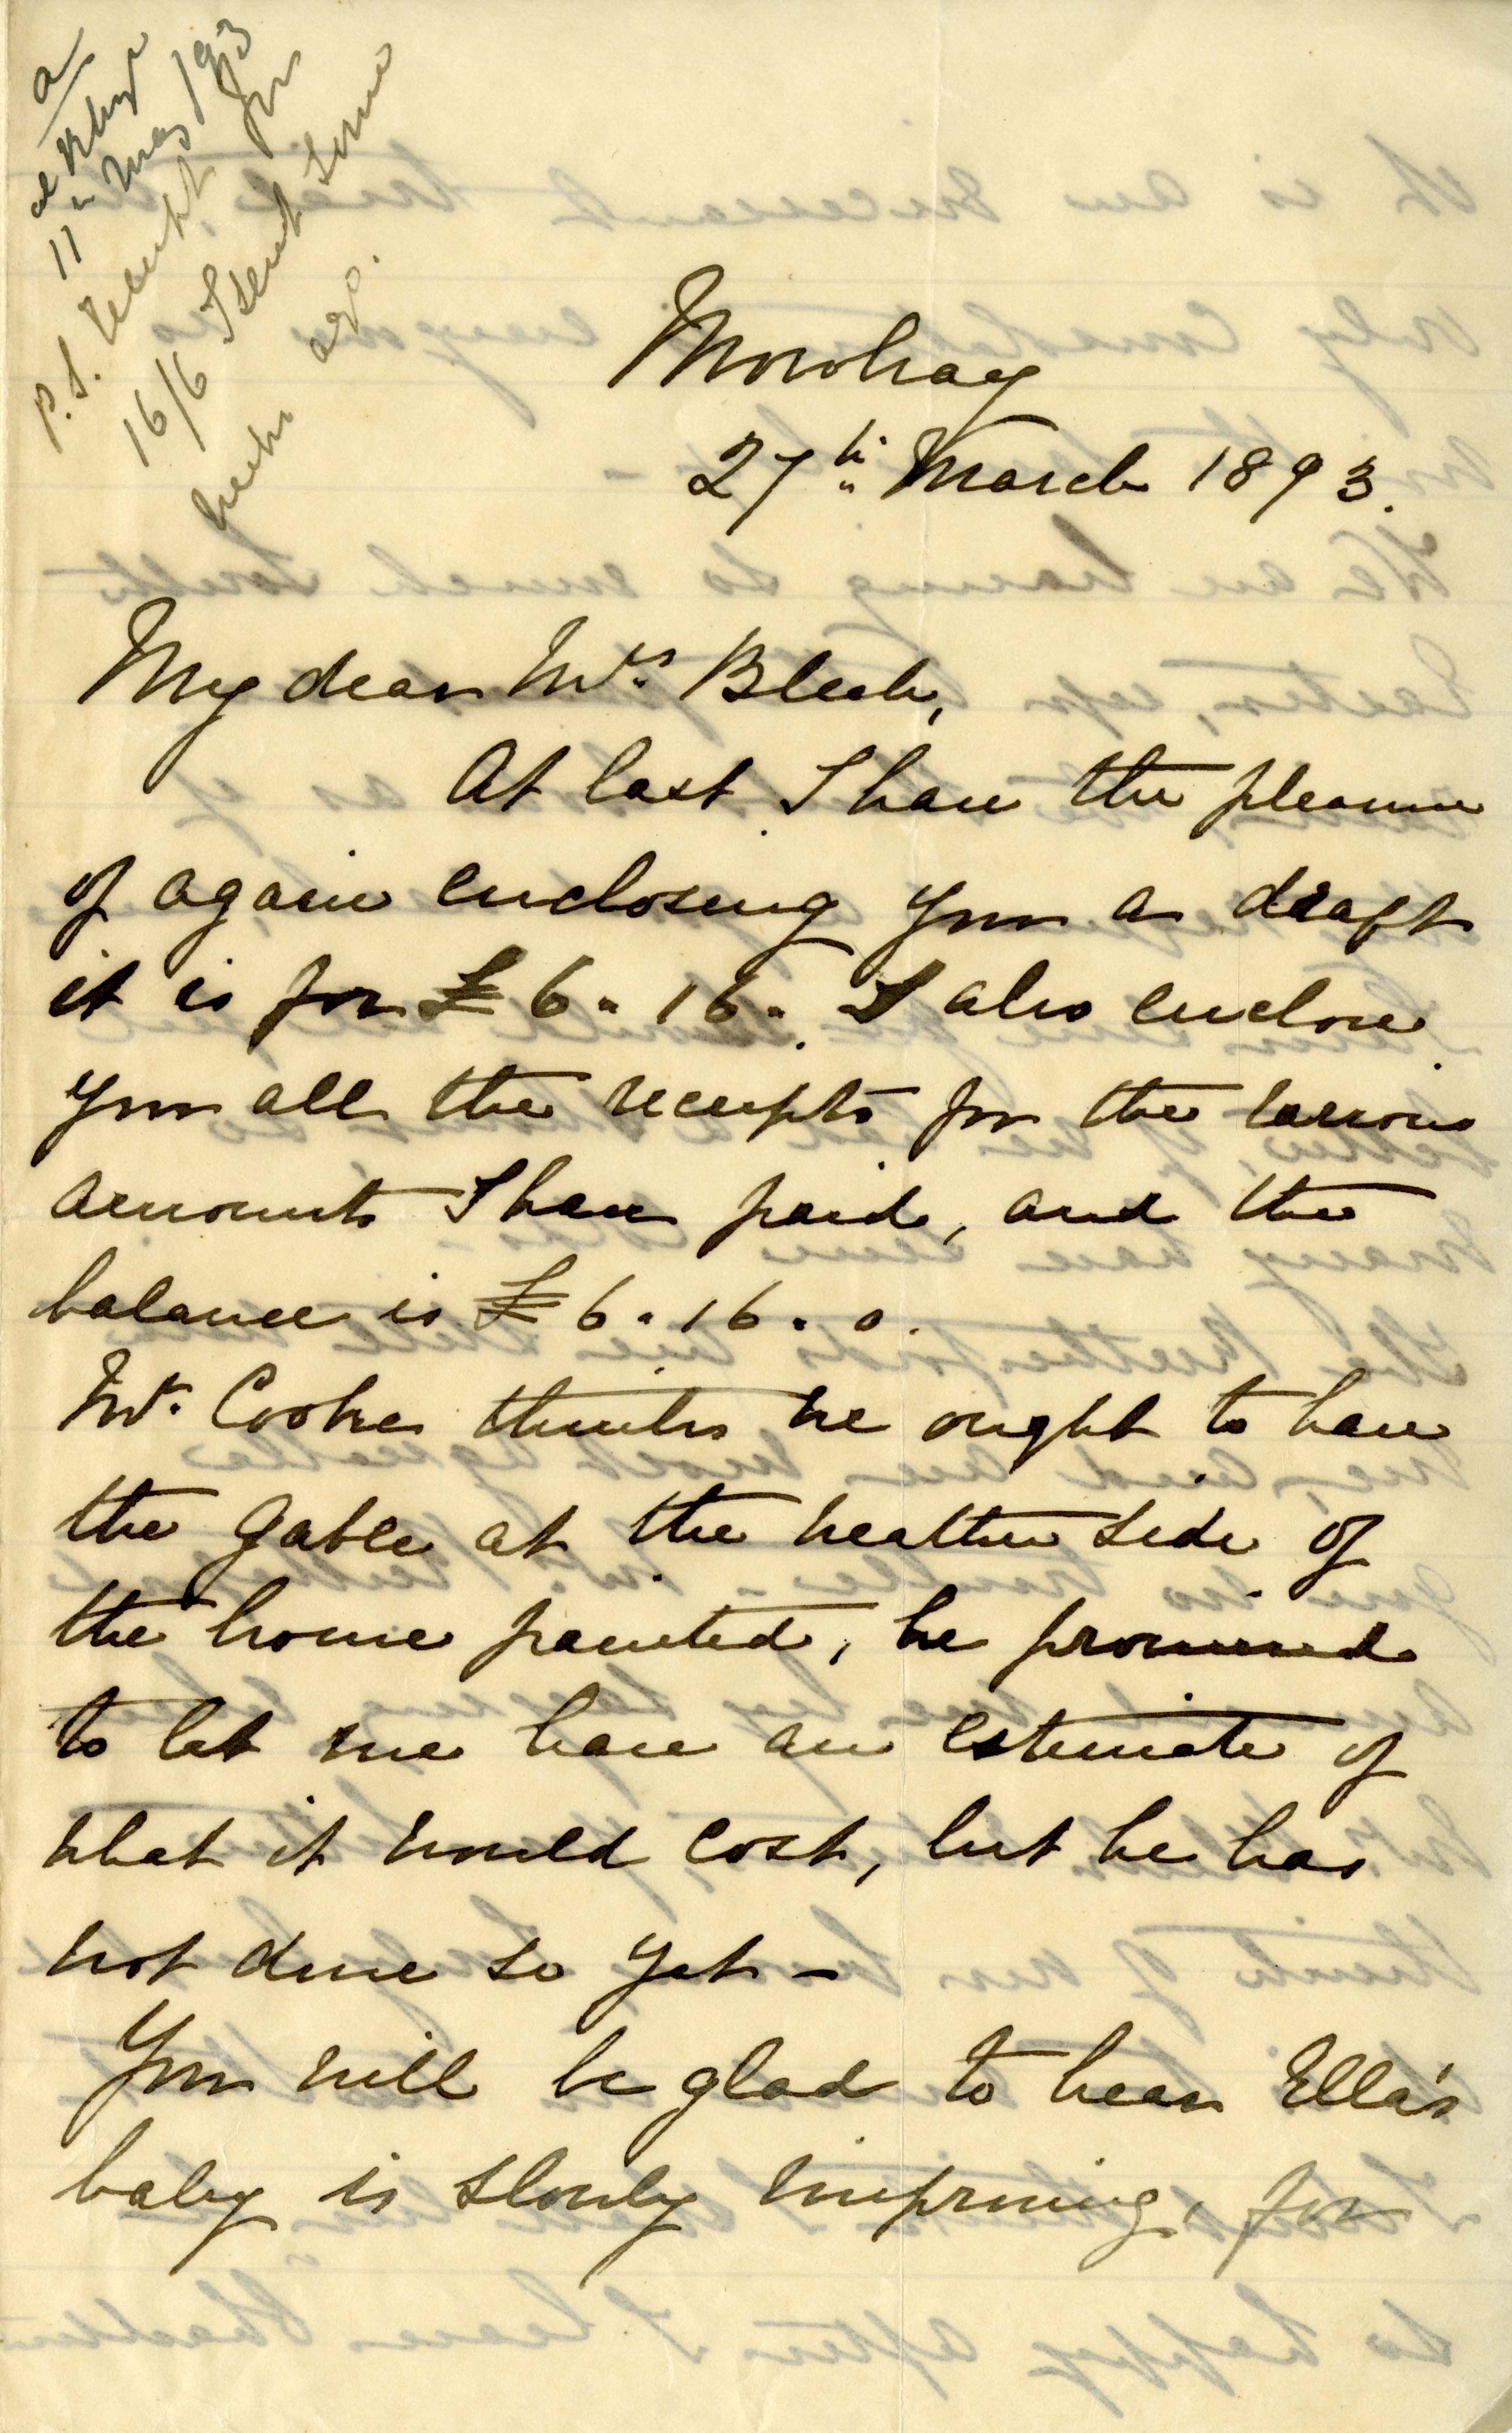 a/
11" May /93
P.S. Receipt for
16/6 I sent some
ago.
Mowbray
27th March 1893.
My dear Mrs Bleek,
At last I have the pleasure
of again enclosing you a draft
it is for £6" 16". I also enclose
you all the receipts for the various
amounts I have paid, and the
balance is £6. 16. 0.
Mr. Cooke thinks we ought to have
the gable at the weather side of
the house painted, he promised
to let me have an estimate of
what it would cost, but he has
not done so yet –
You will be glad to hear Ella's
baby is slowly improving, for